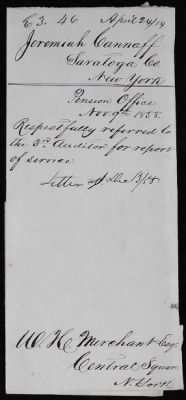 E3. 46 April 24/19
Jeremiah Cannaff
Saratoga Co
New York
Pension Office
Nov. 9th 1858.
Respectfully referred to
the 3rd Auditor for report
of service
Letter
W. H. Merchant Esq.
Central Square
N. York